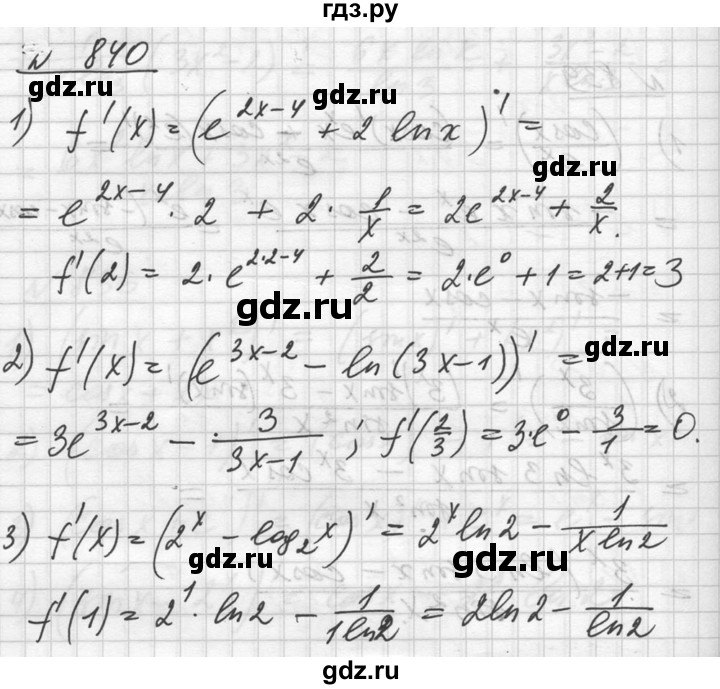 гдз.ру
№ 840
gdz.ru
1) f'(x) = (e^{2x-4} + 2 ln x)' =
gdz.ru
= e^{2x-4} · 2 + 2 · 1/x = 2e^{2x-4} + 2/x.
f'(2) = 2 · e^{2·2-4} + 2/2 = 2·e^0 + 1 = 2+1 = 3
gdz.ru
gdz.ru
2) f'(x) = (e^{3x-2} - ln(3x-1))' =
= 3e^{3x-2} - 3/(3x-1) ; f'(2/3) = 3·e^0 - 3/1 = 0.
3) f'(x) = (2^x - log_2 x)' = 2^x ln2 - 1/(x ln2)
gdz.ru
gdz.ru
f'(1) = 2^1 · ln2 - 1/(1 ln2) = 2ln2 - 1/ln2
gdz.ru